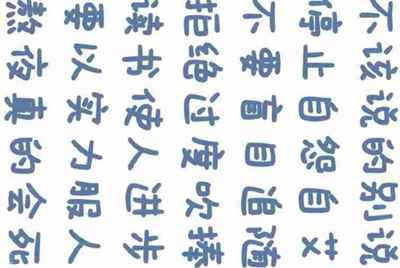 不该说的别说
停止自怨自艾
不要盲目追随
拒绝过度吹捧
读书使人进步
要以实力服人
熬夜真的会死